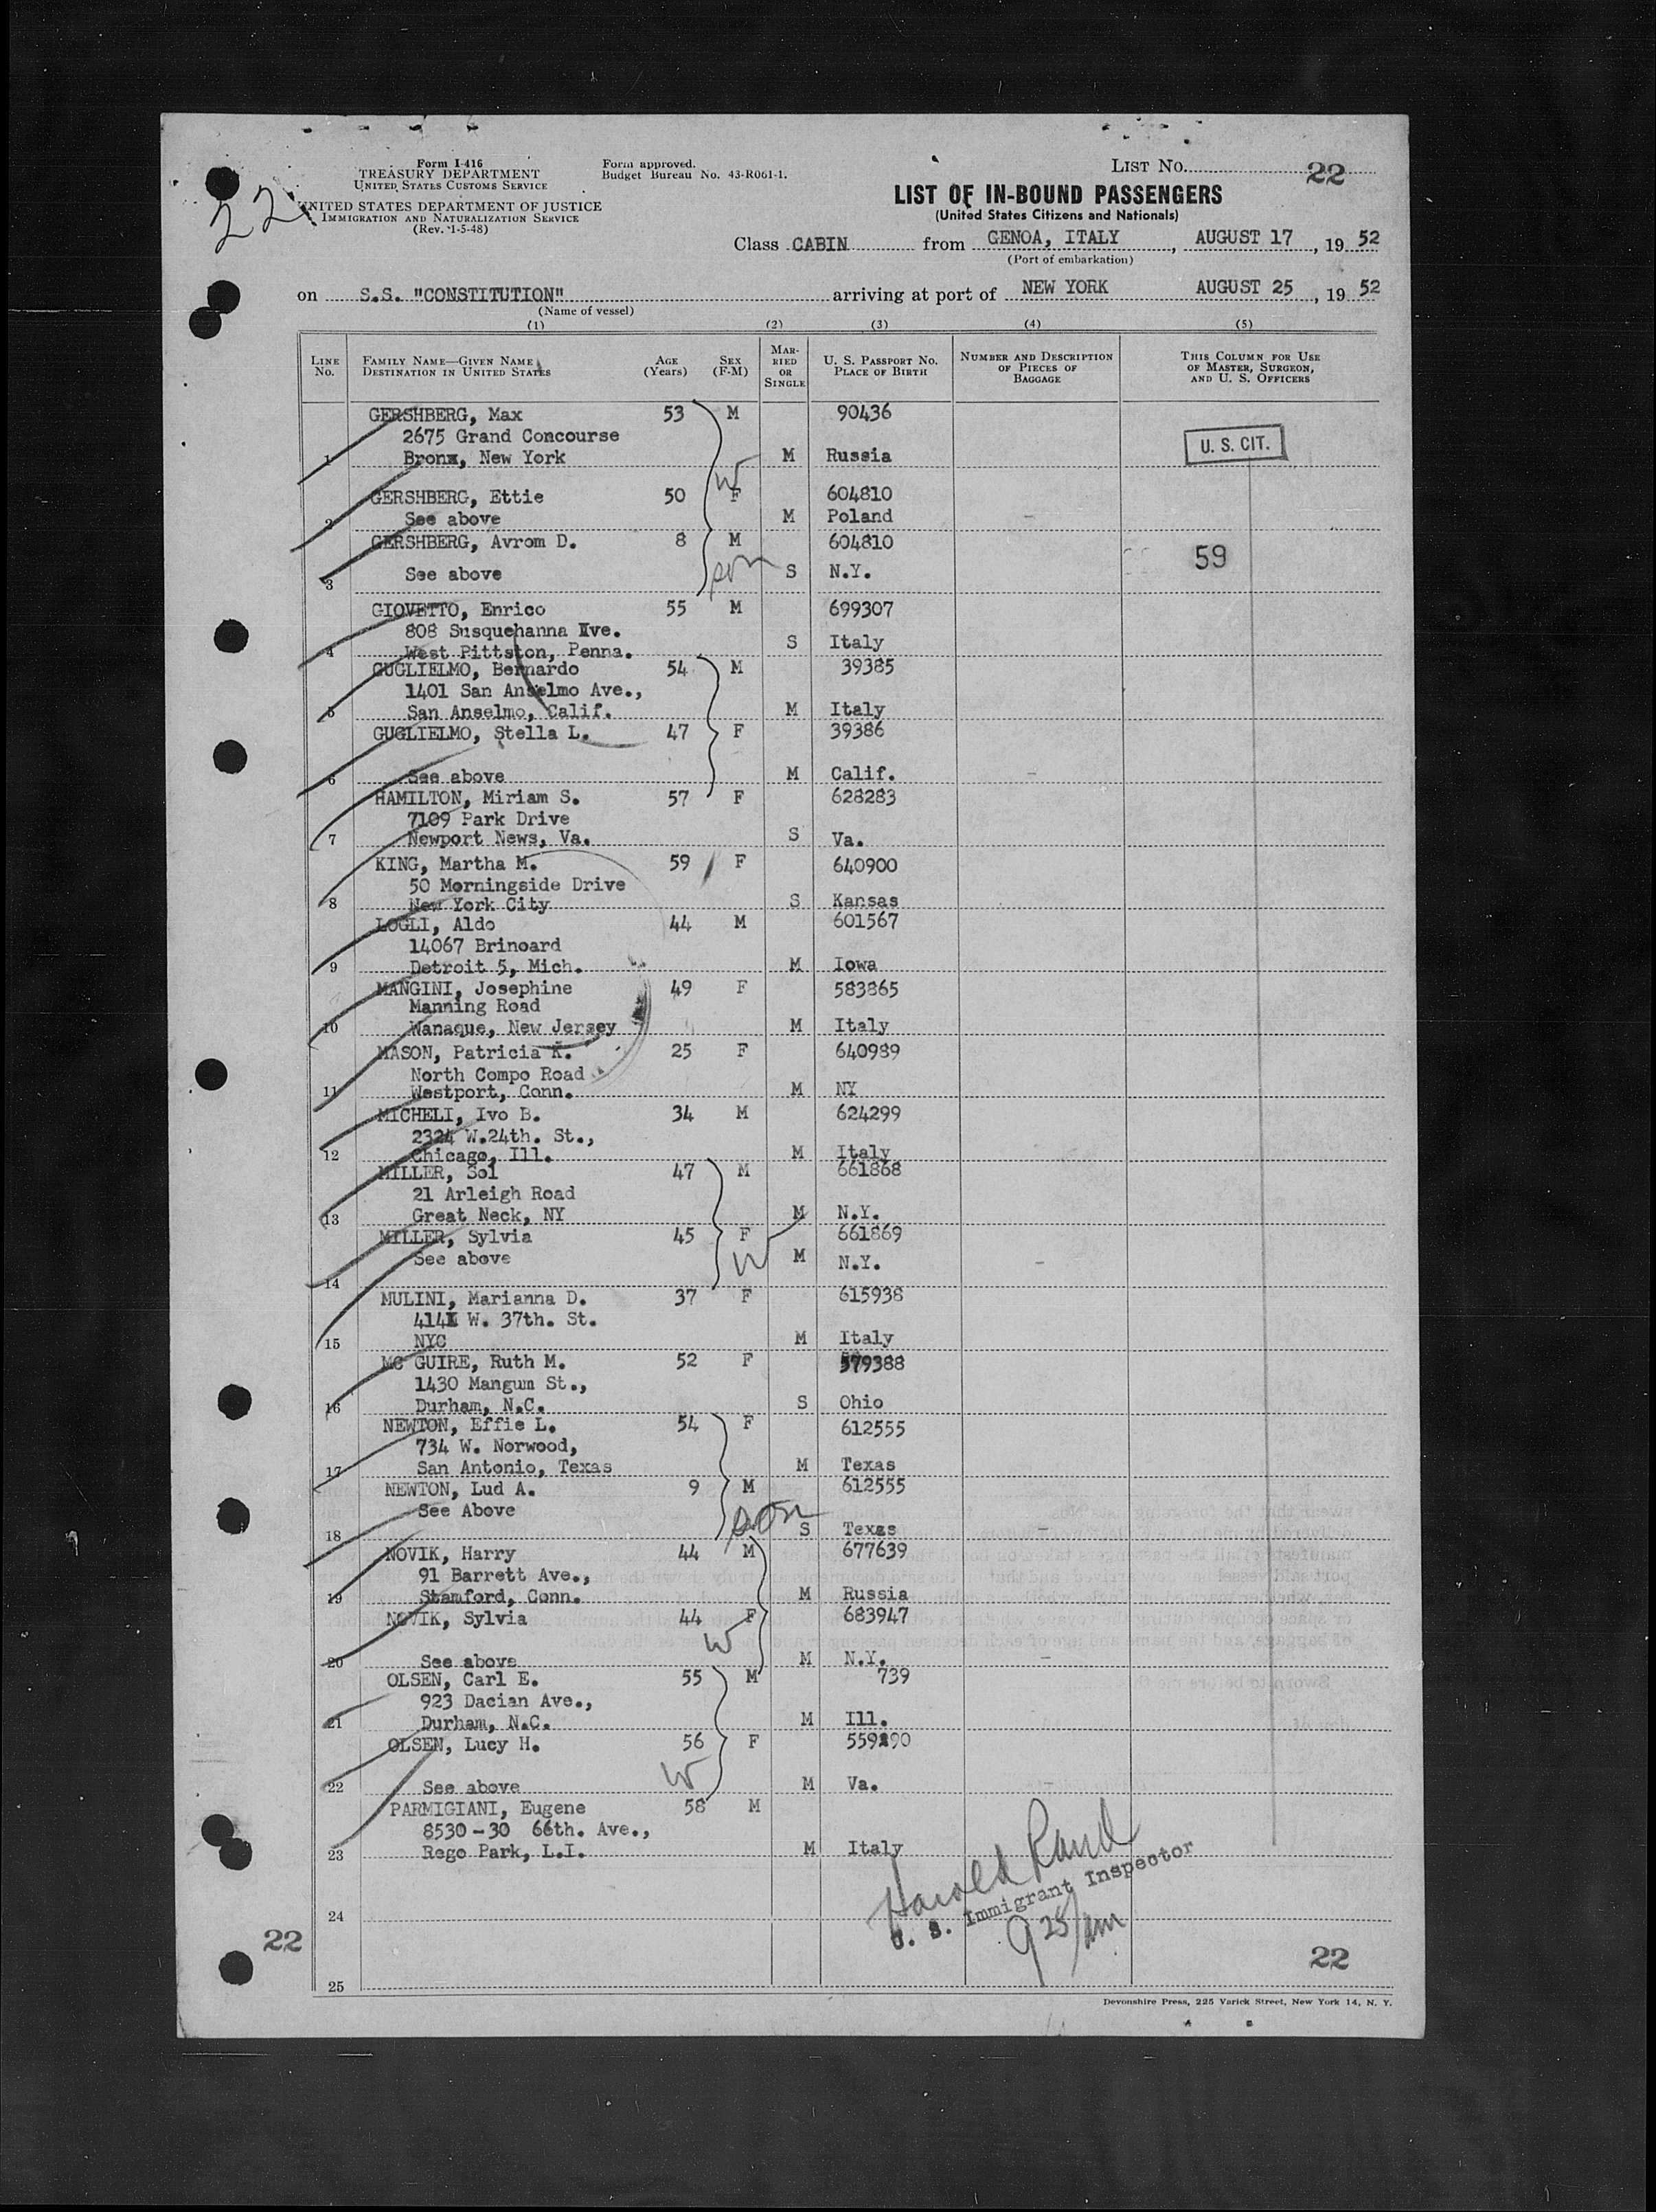 Form I-416
TREASURY DEPARTMENT
UNITED STATES CUSTOMS SERVICE
UNITED STATES DEPARTMENT OF JUSTICE
IMMIGRATION AND NATURALIZATION SERVICE
(Rev. 1-5-48)
Form approved.
Budget Bureau No. 43-R061-1.
LIST No. 22
22
LIST OF IN-BOUND PASSENGERS
(United States Citizens and Nationals)
Class CABIN from GENOA, ITALY, AUGUST 17, 19 52
(Port of embarkation)
on S.S. "CONSTITUTION" arriving at port of NEW YORK AUGUST 25, 19 52
(Name of vessel)
(1) (2) (3) (4) (5)
LINE No. FAMILY NAME—GIVEN NAME DESTINATION IN UNITED STATES AGE (Years) SEX (F-M) MARRIED OR SINGLE U. S. PASSPORT No. PLACE OF BIRTH NUMBER AND DESCRIPTION OF PIECES OF BAGGAGE THIS COLUMN FOR USE OF MASTER, SURGEON, AND U. S. OFFICERS
GERSHBERG, Max 53 M 90436
2675 Grand Concourse
1 Bronx, New York M Russia
U. S. CIT.
GERSHBERG, Ettie 50 W F 604810
2 See above M Poland -
GERSHBERG, Avrom D. 8 M 604810
59
3 See above son S N.Y.
GIOVETTO, Enrico 55 M 699307
808 Susquehanna Ave.
4 West Pittston, Penna. S Italy
GUGLIELMO, Bernardo 54 M 39385
1401 San Anselmo Ave.,
5 San Anselmo, Calif. M Italy
GUGLIELMO, Stella L. 47 F 39386
6 See above M Calif. -
HAMILTON, Miriam S. 57 F 628283
7109 Park Drive
7 Newport News, Va. S Va.
KING, Martha M. 59 F 640900
50 Morningside Drive
8 New York City S Kansas
LOGLI, Aldo 44 M 601567
14067 Brinoard
9 Detroit 5, Mich. M Iowa
MANGINI, Josephine 49 F 583865
Manning Road
10 Wanaque, New Jersey M Italy
MASON, Patricia K. 25 F 640989
North Compo Road
11 Westport, Conn. M NY
MICHELI, Ivo B. 34 M 624299
2324 W.24th. St.,
12 Chicago, Ill. M Italy
MILLER, Sol 47 M 661868
21 Arleigh Road
13 Great Neck, NY M N.Y.
MILLER, Sylvia 45 F 661869
See above W M N.Y. -
14
MULINI, Marianna D. 37 F 615938
414 W. 37th. St.
15 NYC M Italy
MC GUIRE, Ruth M. 52 F 579388
1430 Mangum St.,
16 Durham, N.C. S Ohio
NEWTON, Effie L. 54 F 612555
734 W. Norwood,
17 San Antonio, Texas M Texas
NEWTON, Lud A. 9 M 612555
See Above
18 son S Texas -
NOVIK, Harry 44 M 677639
91 Barrett Ave.,
19 Stamford, Conn. M Russia
NOVIK, Sylvia 44 F 683947
W
20 See above M N.Y. -
OLSEN, Carl E. 55 M 739
923 Dacian Ave.,
21 Durham, N.C. M Ill.
OLSEN, Lucy H. 56 F
22 See above W M Va. -
PARMIGIANI, Eugene 58 M
8530-30 66th. Ave.,
23 Rego Park, L.I. M Italy
Harold Rand
U. S. Immigrant Inspector
9 25/am
24
22
22
25
Devonshire Press, 225 Varick Street, New York 14, N. Y.